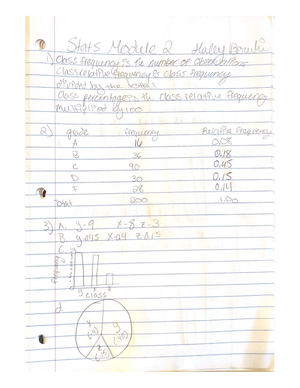 Stats Module 2 Haley
1) Class frequency is the number of observations
Class relative frequency is class frequency
divided by the total
Class percentage is the class relative frequency
multiplied by 100
2) grade frequency Relative frequency
A 16 0.08
B 36 0.18
C 90 0.45
D 30 0.15
F 28 0.14
total 200 1.00
3) A. y-9 x-8 z-3
B. y .45 x .4 z .15
C.
y class
d.
x
y
z